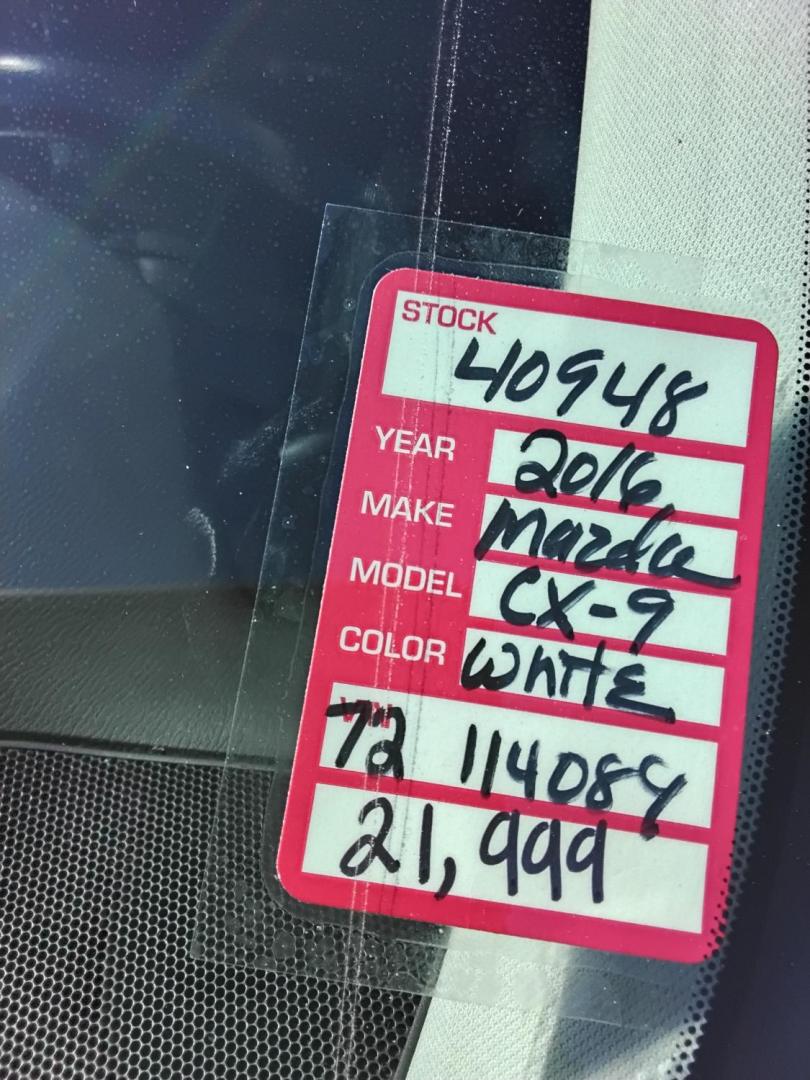 STOCK
40948
YEAR 2016
MAKE Mazda
MODEL CX-9
COLOR WhITE
VIN
72 114089
21,999